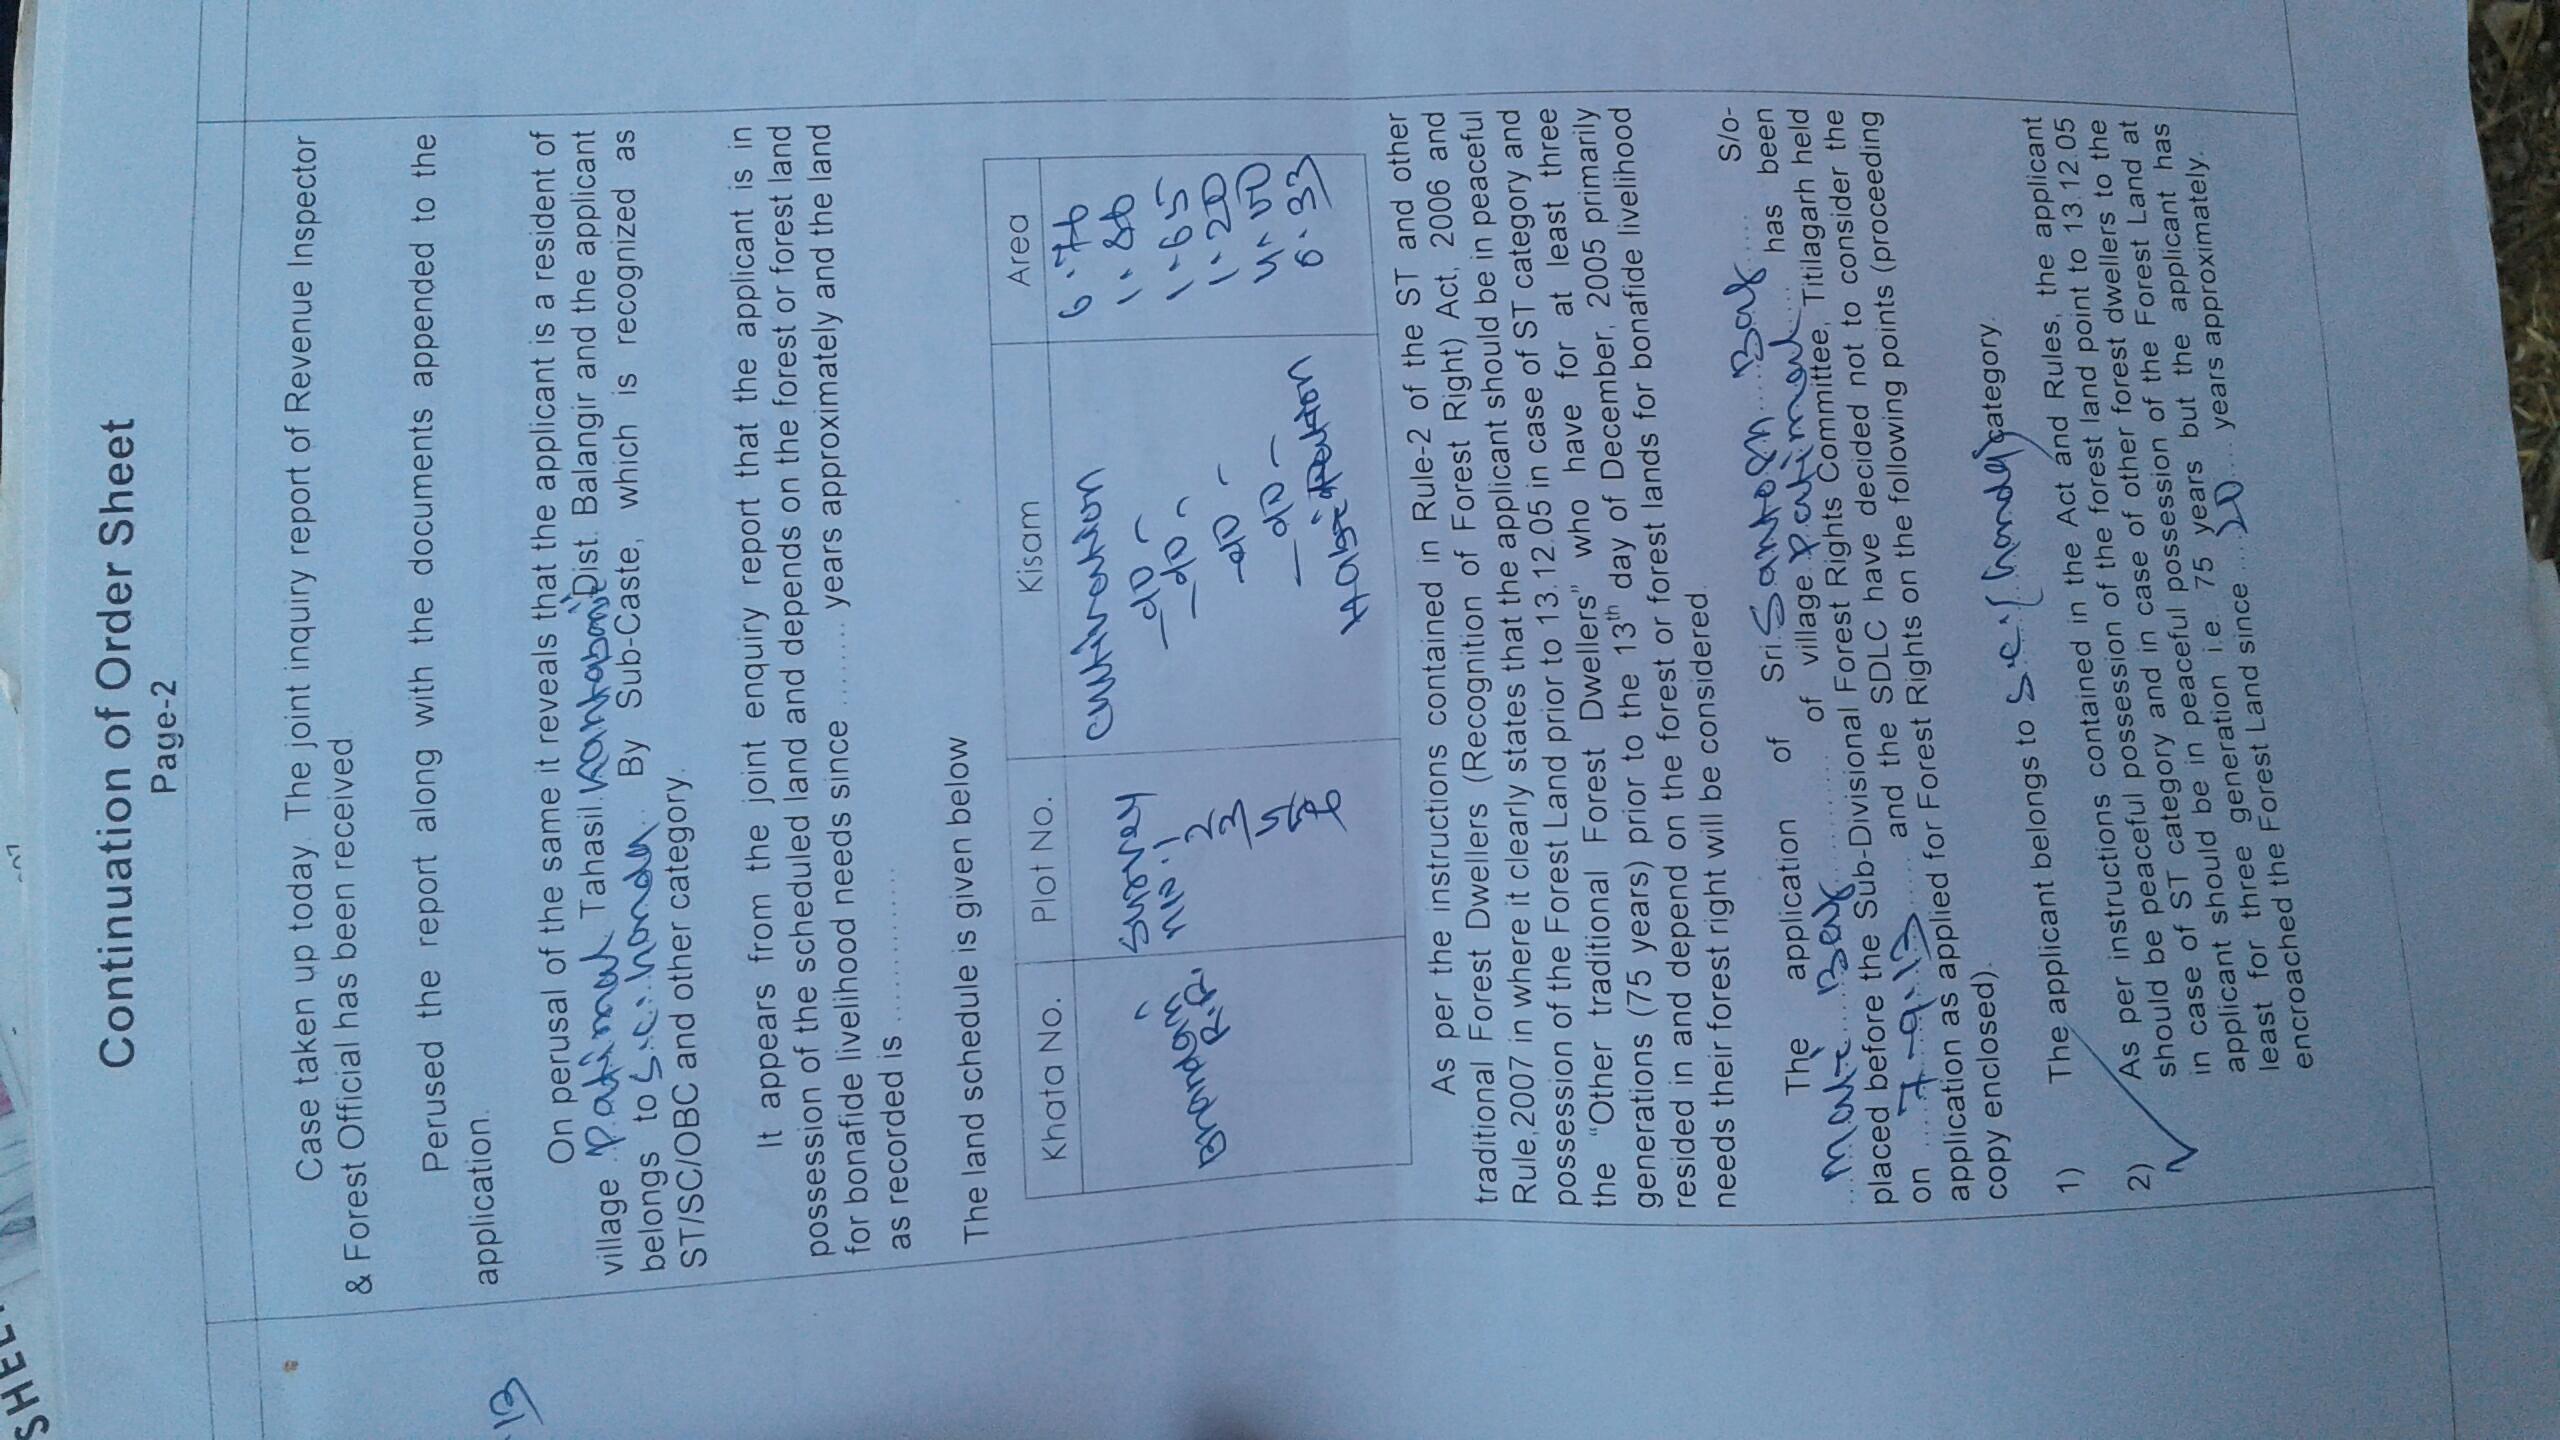 SHEET
Continuation of Order Sheet
Page-2
Case taken up today. The joint inquiry report of Revenue Inspector
& Forest Official has been received
Perused the report along with the documents appended to the
application.
13
On perusal of the same it reveals that the applicant is a resident of
village Patimal Tahasil Kantabanji Dist. Balangir and the applicant
belongs to S.C. By Sub-Caste, which is recognized as
ST/SC/OBC and other category.
It appears from the joint enquiry report that the applicant is in
possession of the scheduled land and depends on the forest or forest land
for bonafide livelihood needs since ......... years approximately and the land
as recorded is ................
The land schedule is given below
Khata No. Plot No. Kisam Area
Survey Cultivation
No. 1 -do- 1.86
R.F. 2 -do- 1.65
3 -do- 1.20
4 -do- 4.00
Habitation 0.33
As per the instructions contained in Rule-2 of the ST and other
traditional Forest Dwellers (Recognition of Forest Right) Act, 2006 and
Rule,2007 in where it clearly states that the applicant should be in peaceful
possession of the Forest Land prior to 13.12.05 in case of ST category and
the "Other traditional Forest Dwellers" who have for at least three
generations (75 years) prior to the 13th day of December, 2005 primarily
resided in and depend on the forest or forest lands for bonafide livelihood
needs their forest right will be considered.
The application of Sri Santosh Bag S/o-
of village Patimal has been
placed before the Sub-Divisional Forest Rights Committee, Titilagarh held
on 7-9-13 and the SDLC have decided not to consider the
application as applied for Forest Rights on the following points (proceeding
copy enclosed).
1) The applicant belongs to S.C. category.
2) As per instructions contained in the Act and Rules, the applicant
should be peaceful possession of the forest land point to 13.12.05
in case of ST category and in case of other forest dwellers to the
applicant should be in peaceful possession of the Forest Land at
least for three generation i.e. 75 years but the applicant has
encroached the Forest Land since 20 years approximately.